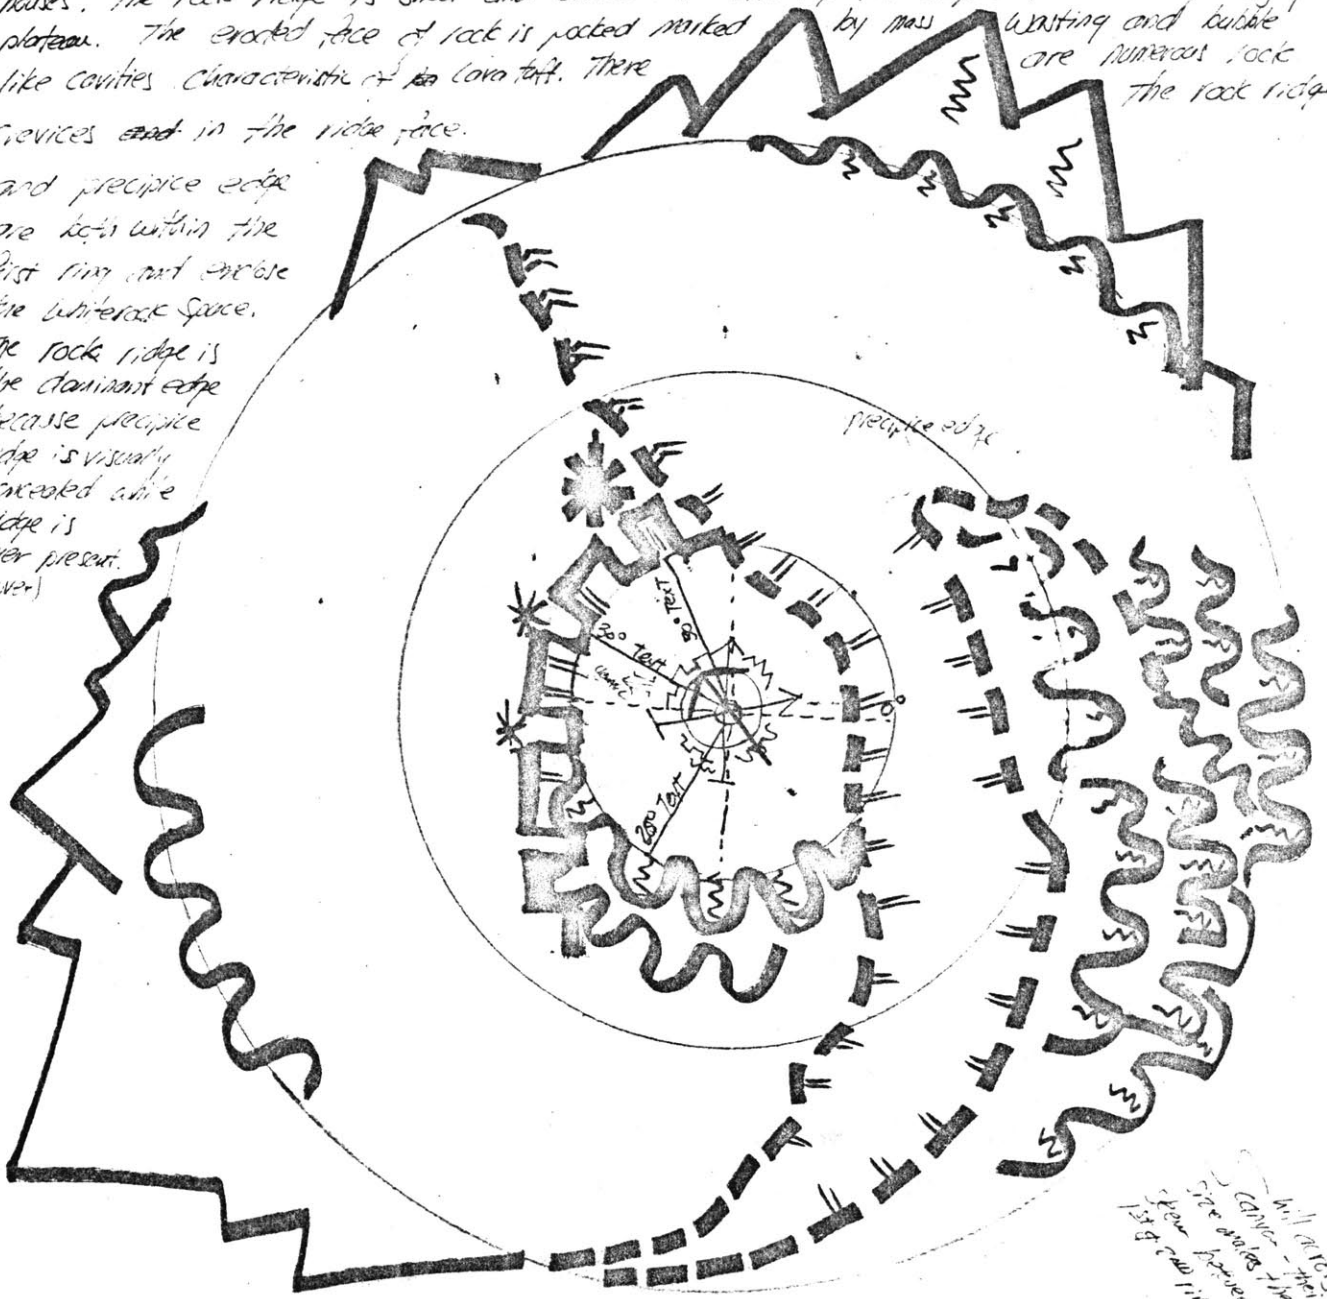 houses. The rock ridge is
plateau. The eroded face of rock is pocked marked by mass wasting and bubble
like cavities characteristic of lava tuff. There are numerous rock
crevices in the ridge face. The rock ridge
and precipice edge
are both within the
first ring and enclose
the Whiterock Space.
The rock ridge is
the dominant edge
because precipice
edge is visually
concealed while
ridge is
ever present.
(over)
precipice edge
90° Text
30° Text
260 Text
0°
hill across
canyon - their
size makes the
skew between
1st &